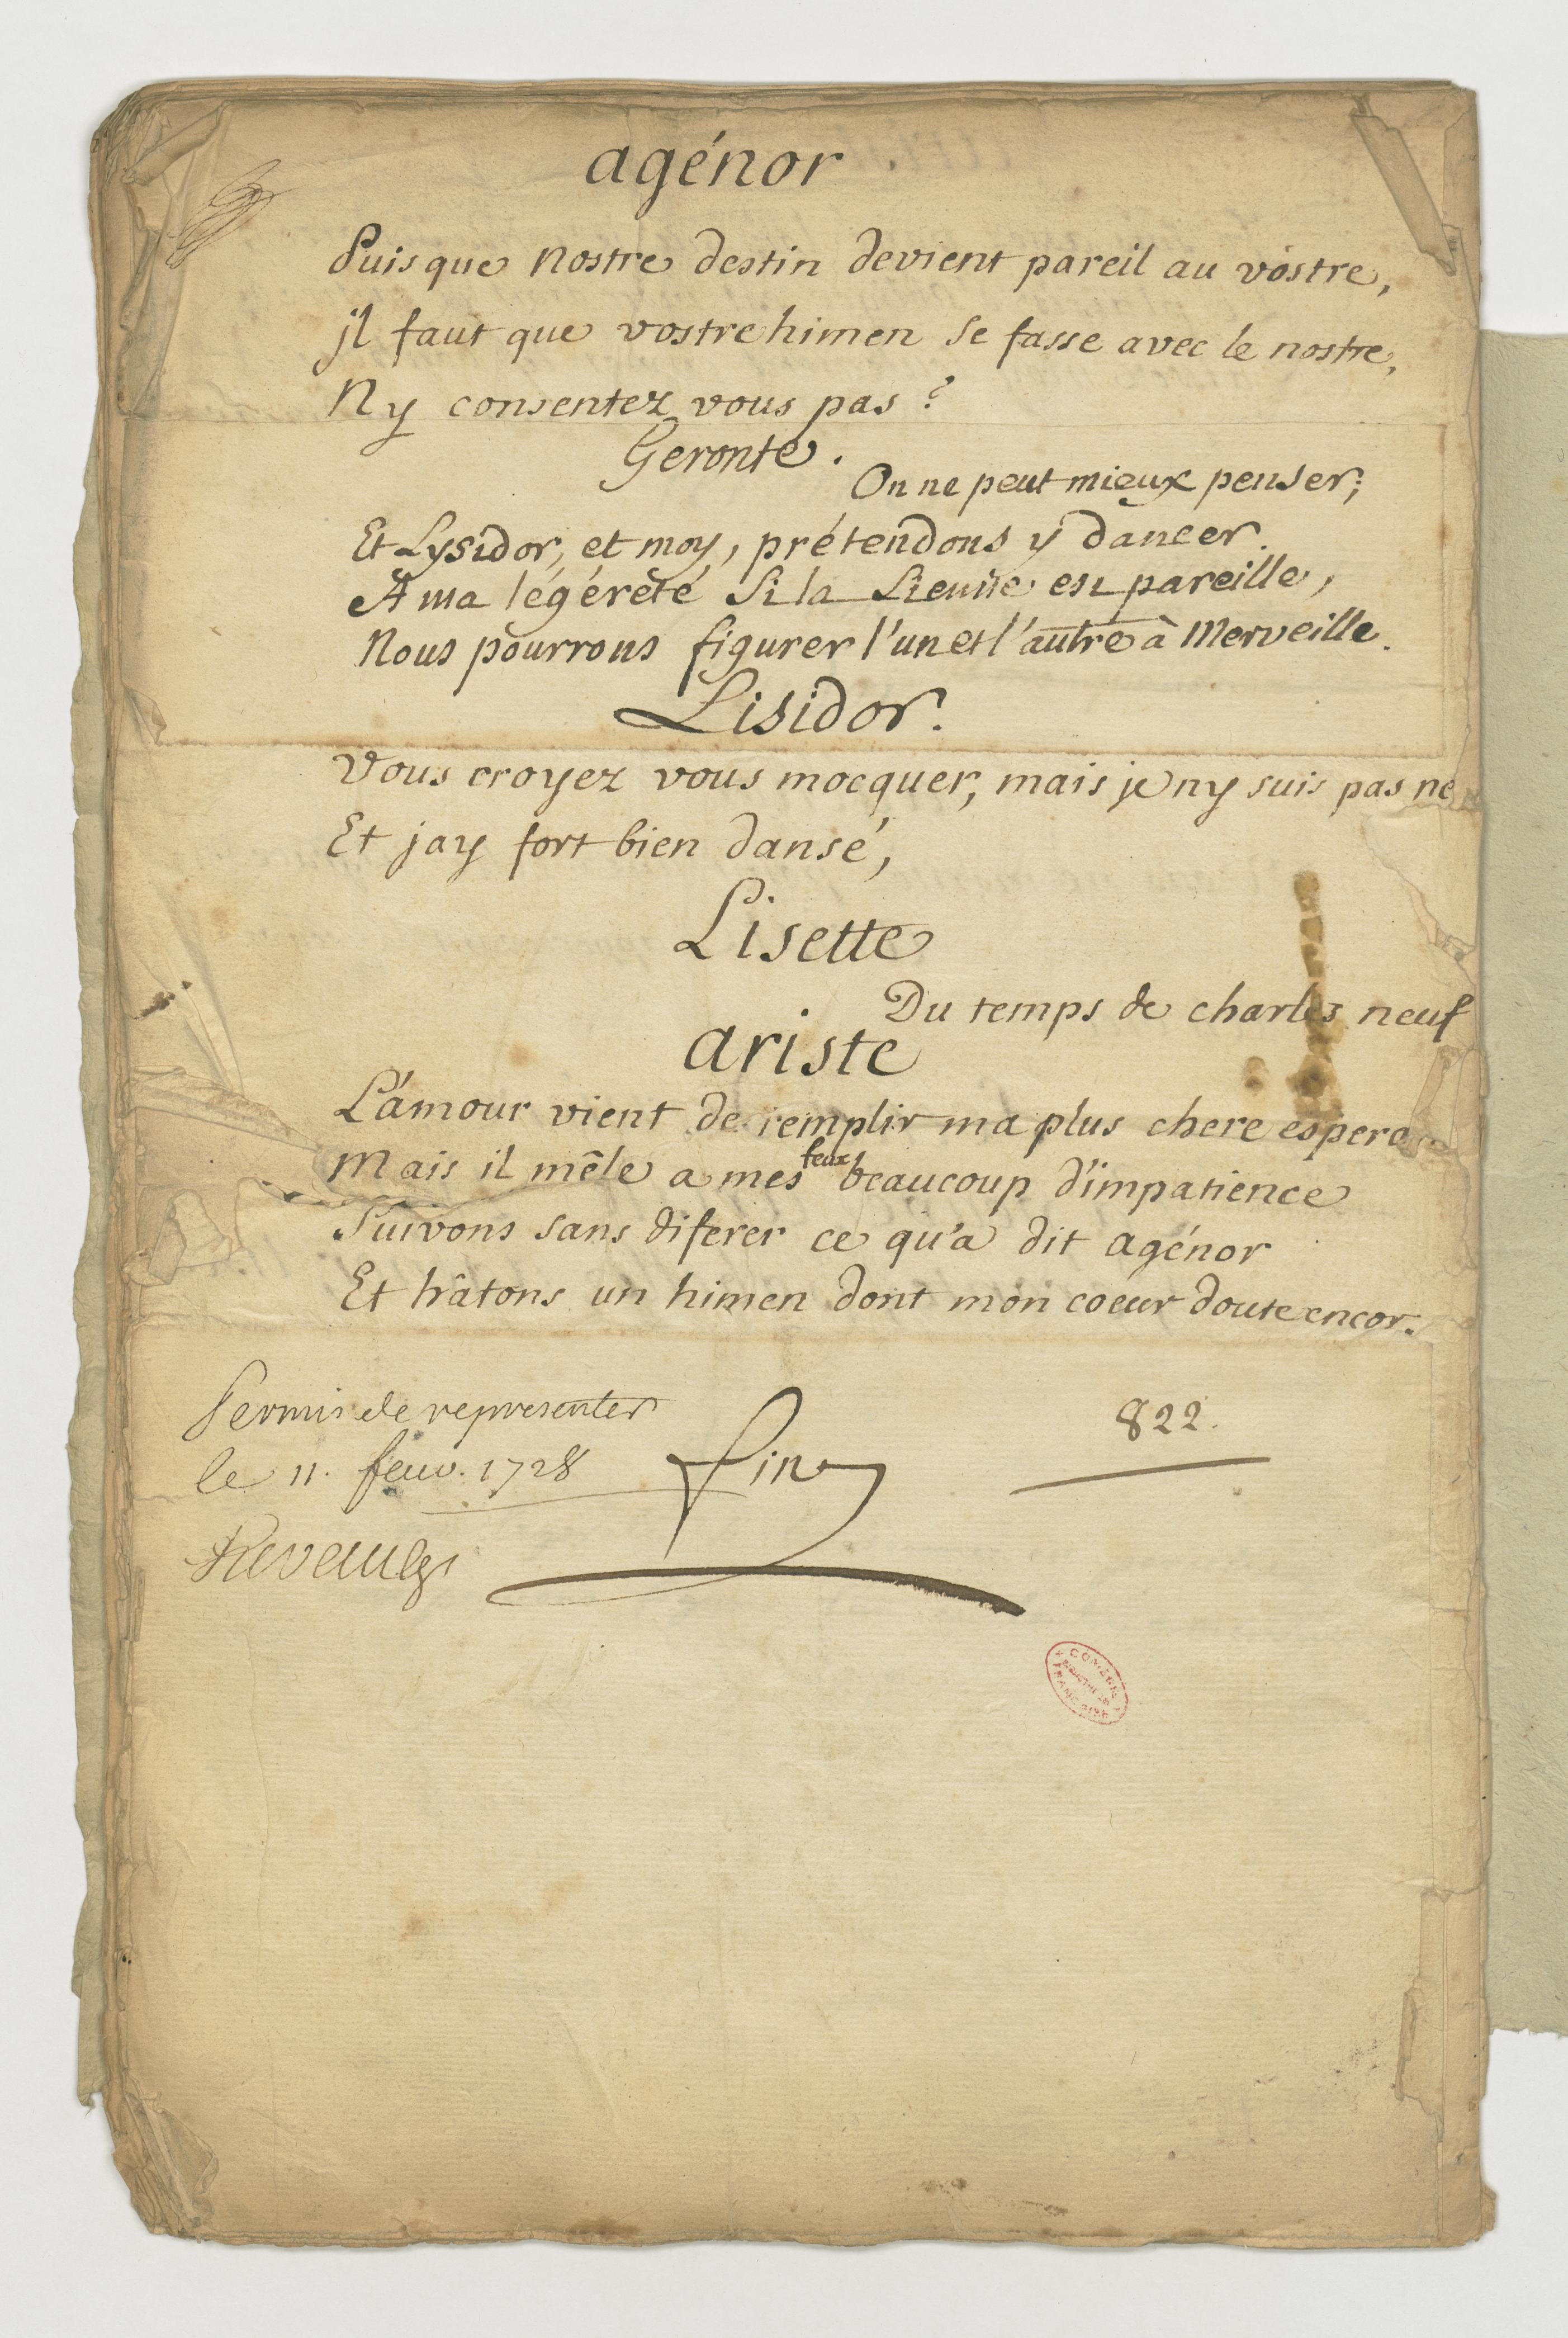 agénor.
Puisque nostre destin devient pareil au vostre,
jl faut que vostre himen se fasse avec le nostre,
Ny consentez vous pas ?
Geronte.
On ne peut mieux penser;
Et Lysidor, et moy, prétendons y dancer.
A ma légéreté si la sienne est pareille,
Nous pourrons figurer l'un et l'autre à Merveille.
Lisidor.
Vous croyez vous mocquer, mais je ny suis pas ne
Et jay fort bien dansé,
Lisette
Du temps de charles neuf
ariste
L'amour vient de remplir ma plus chere
feux
Mais il mêle a mes beaucoup d'impatience
Suivons sans diferer ce qu'a dit agénor
Et hâtons un himen dont mon coeur doute encor.
Permis de representer
le 11. feuv. 1728
fin
822.
COMÉDIE FRANÇAISE